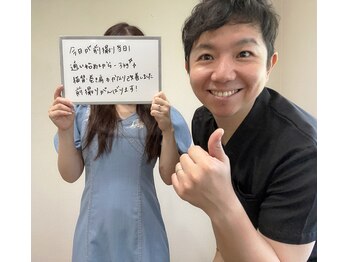 今日が前撮り当日!
通い始めてから-3kg↓
猫背・巻き肩もかなり改善しました
前撮りがんばります!